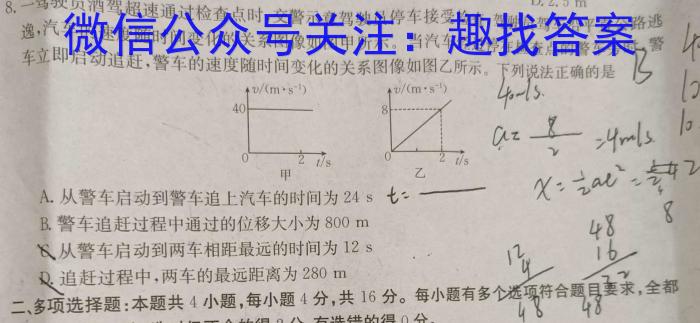 8.一驾驶员酒驾超速通过检查点时,交警示意驾驶员停车接受
路逃
逸,汽
速度随时间变化的关系图像如图甲所示。当汽车
警
微信公众号关注：趣找答案
车立即启动追赶,警车的速度随时间变化的关系图像如图乙所示。下列说法正确的是
B
40m/s.
v/(m·s⁻¹)
40
0
2
t/s
甲
v/(m·s⁻¹)
8
0
2
t/s
乙
a= 8/2 =4m/s
A. 从警车启动到警车追上汽车的时间为 24 s
t=
x=½at²=
B. 警车追赶过程中通过的位移大小为 800 m
C. 从警车启动到两车相距最远的时间为 12 s
D. 追赶过程中,两车的最远距离为 280 m
12
4
48
48
16
48
8
二、多项选择题:本题共 4 小题,每小题 4 分,共 16 分。每小题有多个选项符合题目要求,全部
有选错的得 0 分。